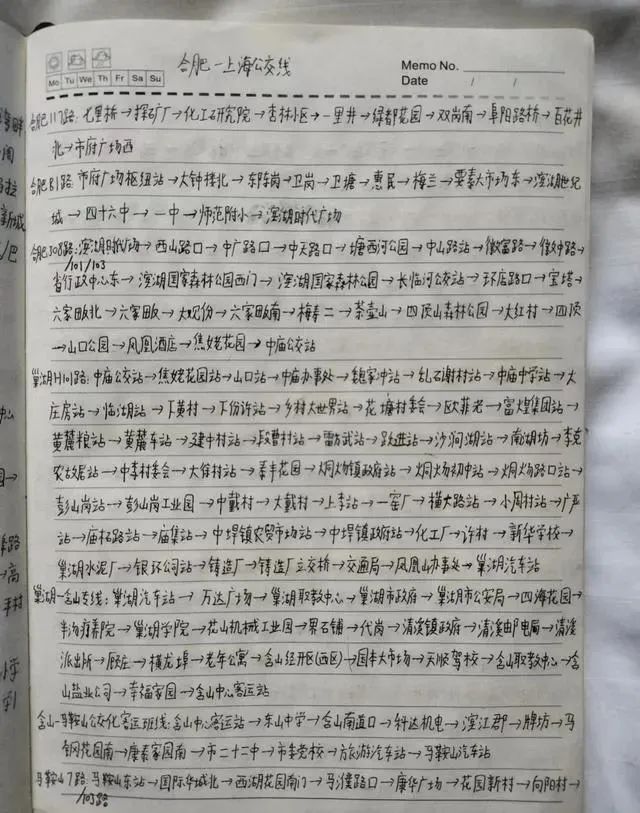 合肥—上海公交线
Memo No.
Mo Tu We Th Fr Sa Su
Date / /
合肥117路: 七里桥→探矿厂→化工研究院→杏林小区→一里井→绿都花园→双岗南→阜阳路桥→百花井
北→市府广场西
合肥B1路: 市府广场枢纽站→大钟楼北→东陈岗→卫岗→卫塘→惠民→梅兰→要素大市场东→滨湖世纪
城→四十六中→一中→师范附小→滨湖时代广场
合肥508路: 滨湖时代广场→西山路口→中广路口→中天路口→塘西河公园→中山路站→徽富路→徽中路→
/101/103
省行政中心东→滨湖国家森林公园西门→滨湖国家森林公园→长临河公交站→环居路口→宝塔→
六家畈北→六家畈→大observed份→六家畈南→梅寿二→茶壶山→四顶山森林公园→大红村→四顶
→山口公园→凤凰酒店→焦姥花园→中庙公交站
巢湖H101路: 中庙公交站→焦姥花园站→山口站→中庙办事处→魏家冲站→乱石谢村站→中庙中学站→大
庄房站→临湖站→下黄村→下份许站→乡村大世界站→花塘村委会→欧菲光→富煌集团站→
黄麓粮站→黄麓车站→建中村站→段曹村站→雷方武站→跃进站→沙涧湖站→南湖坊→李克
农故居站→中李村委会→大俊村站→泰丰花园→烔炀镇政府站→烔炀初中站→烔炀路口站→
彭山岗站→彭山岗工业园→中戴村→大戴村→上李站→一窑厂→横大路站→小周村站→广严
站→庙石路站→庙集站→中垾镇农贸市场站→中垾镇政府站→化工厂→许村→新华学校→
巢湖水泥厂→银环公司站→铸造厂→铸造厂立交桥→交通局→凤凰山办事处→巢湖汽车站
巢湖-含山专线: 巢湖汽车站→万达广场→巢湖职教中心→巢湖市政府→巢湖市公安局→四海花园→
半汤疗养院→巢湖学院→花山机械工业园→界石铺→代岗→清溪镇政府→清溪邮电局→清溪
派出所→顾庄→横龙埠→老年公寓→含山经开区(西区)→国本大市场→天顺驾校→含山职教中心→含
山盐业公司→幸福家园→含山中心客运站
含山-马鞍山公交化客运班线: 含山中心客运站→东山中学→含山南道口→科达机电→滨江郡→牌坊→马
钢花园南→康泰家园南→市二十二中→市委党校→旅游汽车站→马鞍山汽车站
马鞍山7路: 马鞍山东站→国际华城北→西湖花园南门→马濮路口→康华广场→花园新村→向阳村→
/103路